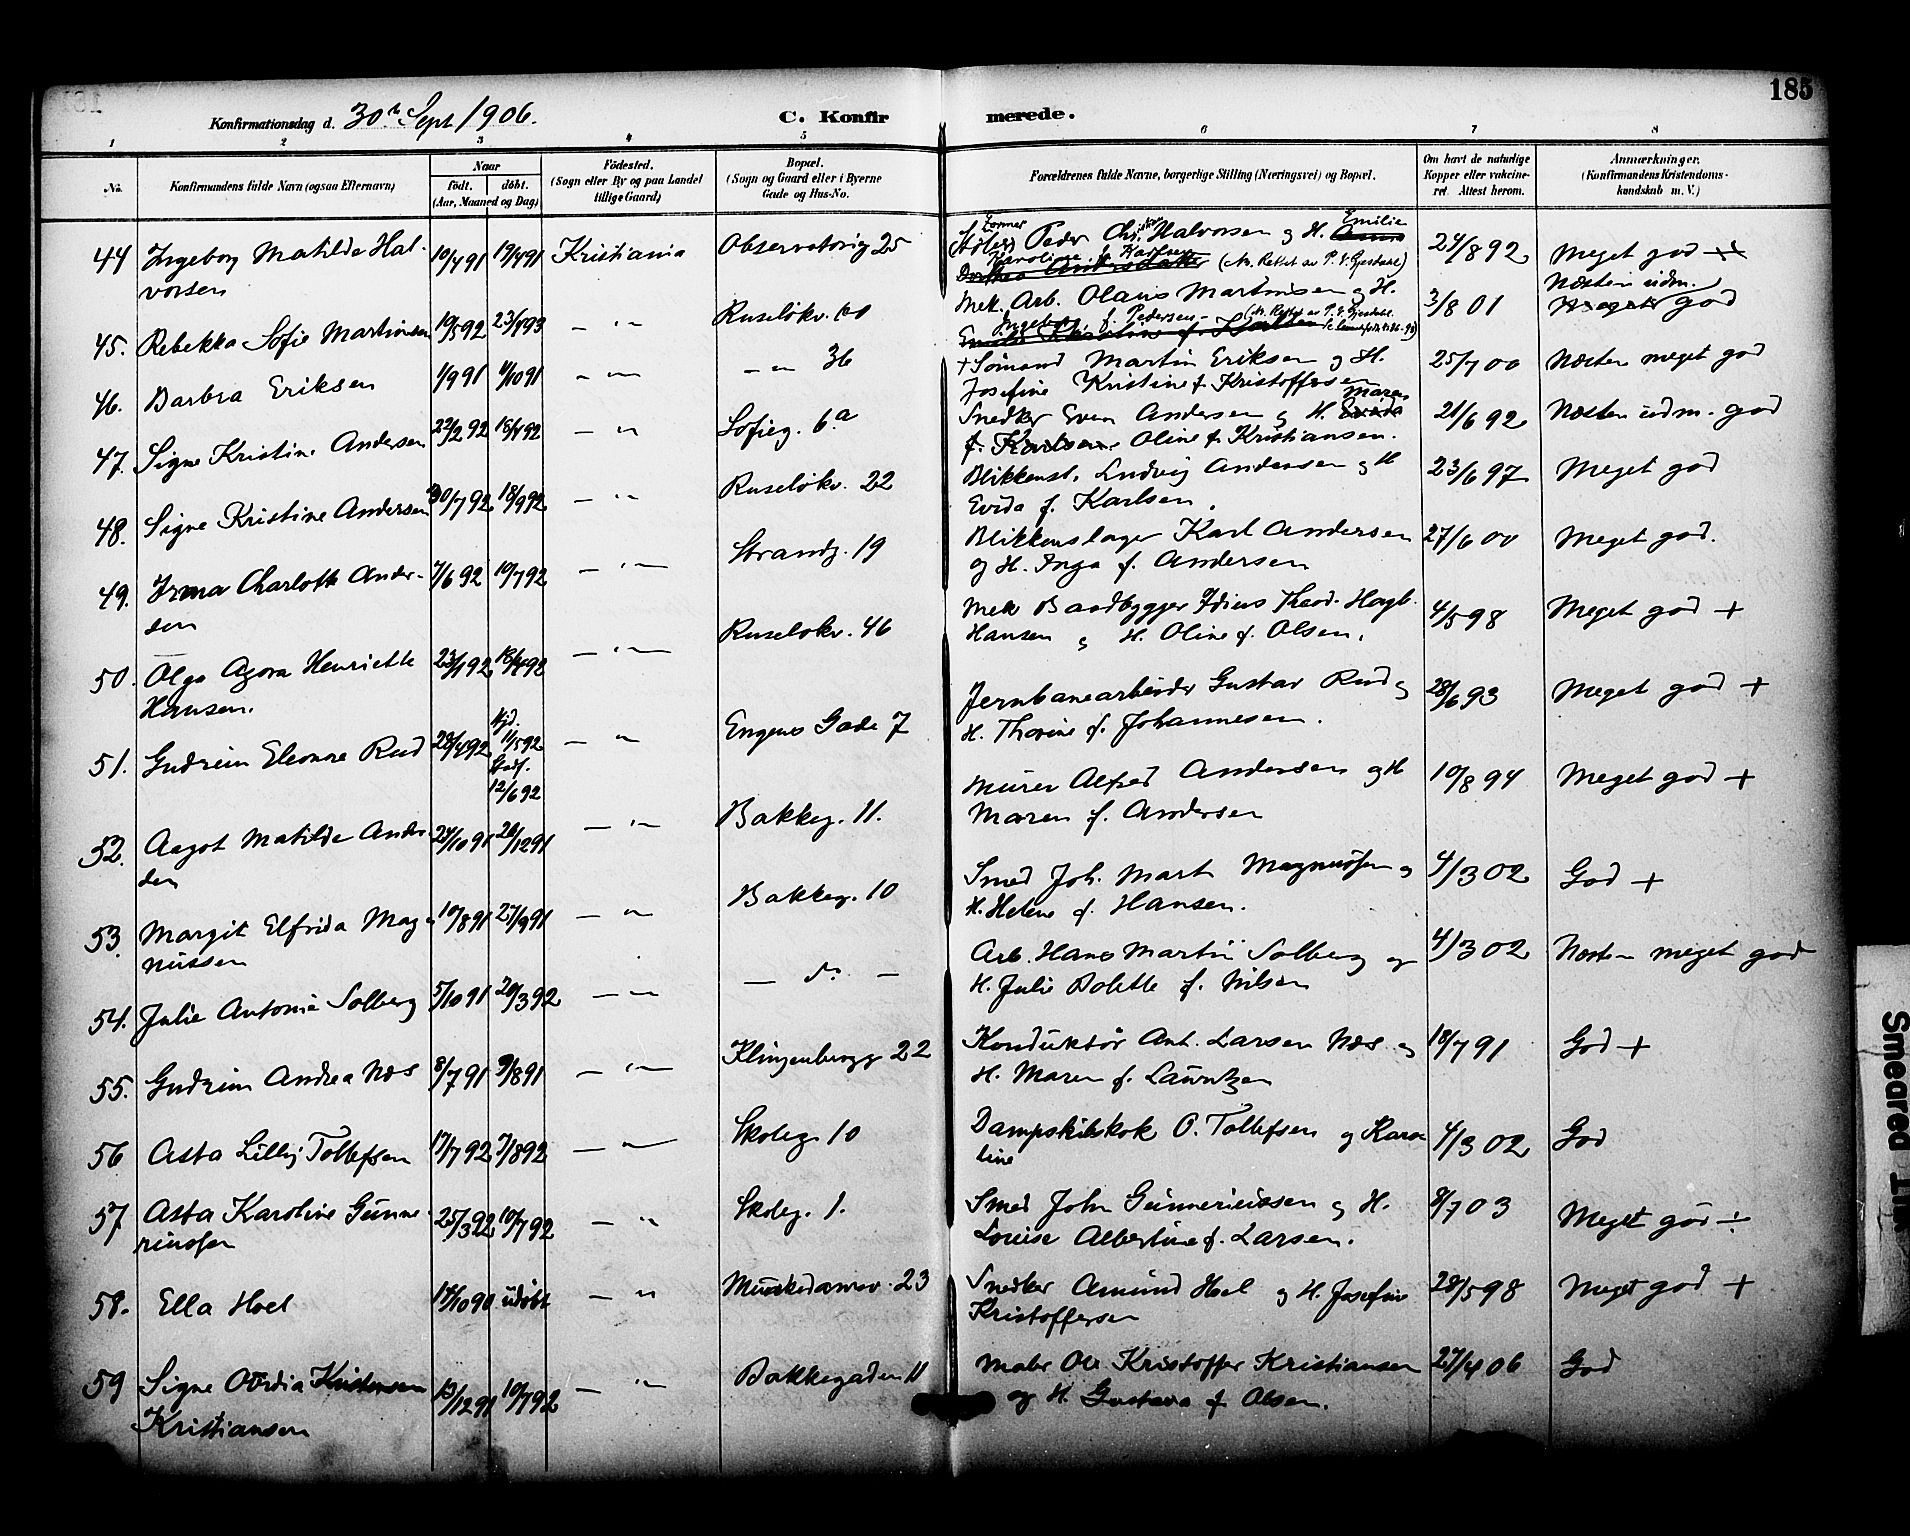 185
Konfirmationsdag d. 30te Sept 1906.
C. Konfirmerede.
1 2 3 4 5 6 7 8
No.
Konfirmandens fulde Navn (ogsaa Efternavn)
Naar
født. døbt.
(Aar, Maaned og Dag)
Fødested.
(Sogn eller By og paa Landet
tillige Gaard)
Bopæl.
(Sogn og Gaard eller i Byerne
Gade og Hus-No.
Forældrenes fulde Navne, borgerlige Stilling (Næringsvei) og Bopæl.
Om havt de naturlige
Kopper eller vakcine-
ret. Attest herom.
Anmærkninger.
(Konfirmandens Kristendoms-
kundskab m. V.)
44 Ingeborg Matilde Hal- 10/4 91 19/4 91 Kristiania Observatorieg 25 Peder Chr. Halvorsen og H. Emilie 24/8 92 Meget god
vorsen Karoline f. Karlsen (
45. Rebekka Sofie Martinsen 19/5 92 23/4 93 — " — Ruseløkv. 60 Mek. Arb. Olaus Martinsen og H. 3/8 01 Næsten udm. god
Ingeborg f. Pedersen
46. Barbra Eriksen 1/9 91 4/10 91 — " — — " — 36 + Sømand Martin Eriksen og H. 25/7 00 Næsten meget god
Josefine Kristine f. Kristoffersen
47. Signe Kristine Andersen 22/2 92 18/4 92 — " — Sofieg. 6a Snedker Even Andersen og H. Maren 21/6 92 Næsten udm. god
f. Karlsen. Oline f. Kristiansen.
48. Signe Kristine Andersen 30/7 92 18/9 92 — " — Ruseløkv. 22 Blikkensl. Ludvig Andersen og H 23/6 97 Meget god
Evida f. Karlsen.
49. Irma Charlotte Ander- 7/6 92 10/7 92 — " — Strandg. 19 Blikkenslager Karl Andersen 27/6 00 Meget god.
sen og H. Inga f. Andersen
50. Olga Agora Henriette 23/1 92 18/4 92 — " — Ruseløkv. 46 Mek Baadbygger Theod. Hagb. 4/5 98 Meget god +
Hansen. Hansen og H. Oline f. Olsen.
51. Gudrun Eleonore Rud 28/4 92 Hjd. 11/5 92 — " — Engens Gade 7 Jernbanearbeider Gustav Rud og 28/6 93 Meget god +
12/6 92 H. Thorine f. Johannesen.
52. Aagot Matilde Ander- 24/10 91 26/12 91 — " — Bakkeg. 11. Murer Alfred Andersen og H 10/8 94 Meget god +
sen Maren f. Andersen
53. Margit Elfrida Mag- 10/8 91 27/9 91 — " — Bakkeg. 10 Smed Joh. Mart. Magnussen og 4/3 02 God +
nussen H. Helene f. Hansen.
54. Julie Antonie Solberg 5/10 91 20/3 92 — " — — do. — Arb. Hans Martin Solberg og 4/3 02 Næsten meget god
H. Julie Bolette f. Nilsen
55. Gudrun Andrea Næs 8/7 91 9/8 91 — " — Klingenbergg 22 Konduktør Ant. Larsen Næs og 18/7 91 God +
H. Maren f. Lauritzen
56 Asta Lilly Tollefsen 17/7 92 7/8 92 — " — Skoleg. 10 Dampskibskok O. Tollefsen og Karo- 4/3 02 God
line
57 Asta Karoline Gunne- 25/3 92 10/7 92 — " — Skoleg. 1. Smed John Gunneriussen og H. 8/7 03 Meget god ÷
riussen Louise Albertine f. Larsen.
58. Ella Hoel 14/10 90 udøbt — " — Munkedamsv. 23 Snedker Amund Hoel og H. Josefine 28/5 98 Meget god +
Kristoffersen
59 Signe Kristensen 13/12 91 10/7 92 — " — Bakkegaden 11 Maler Ole Kristoffer Kristiansen 27/4 06 God
Kristiansen og H. Gustava f. Olsen.
Smeared Ink